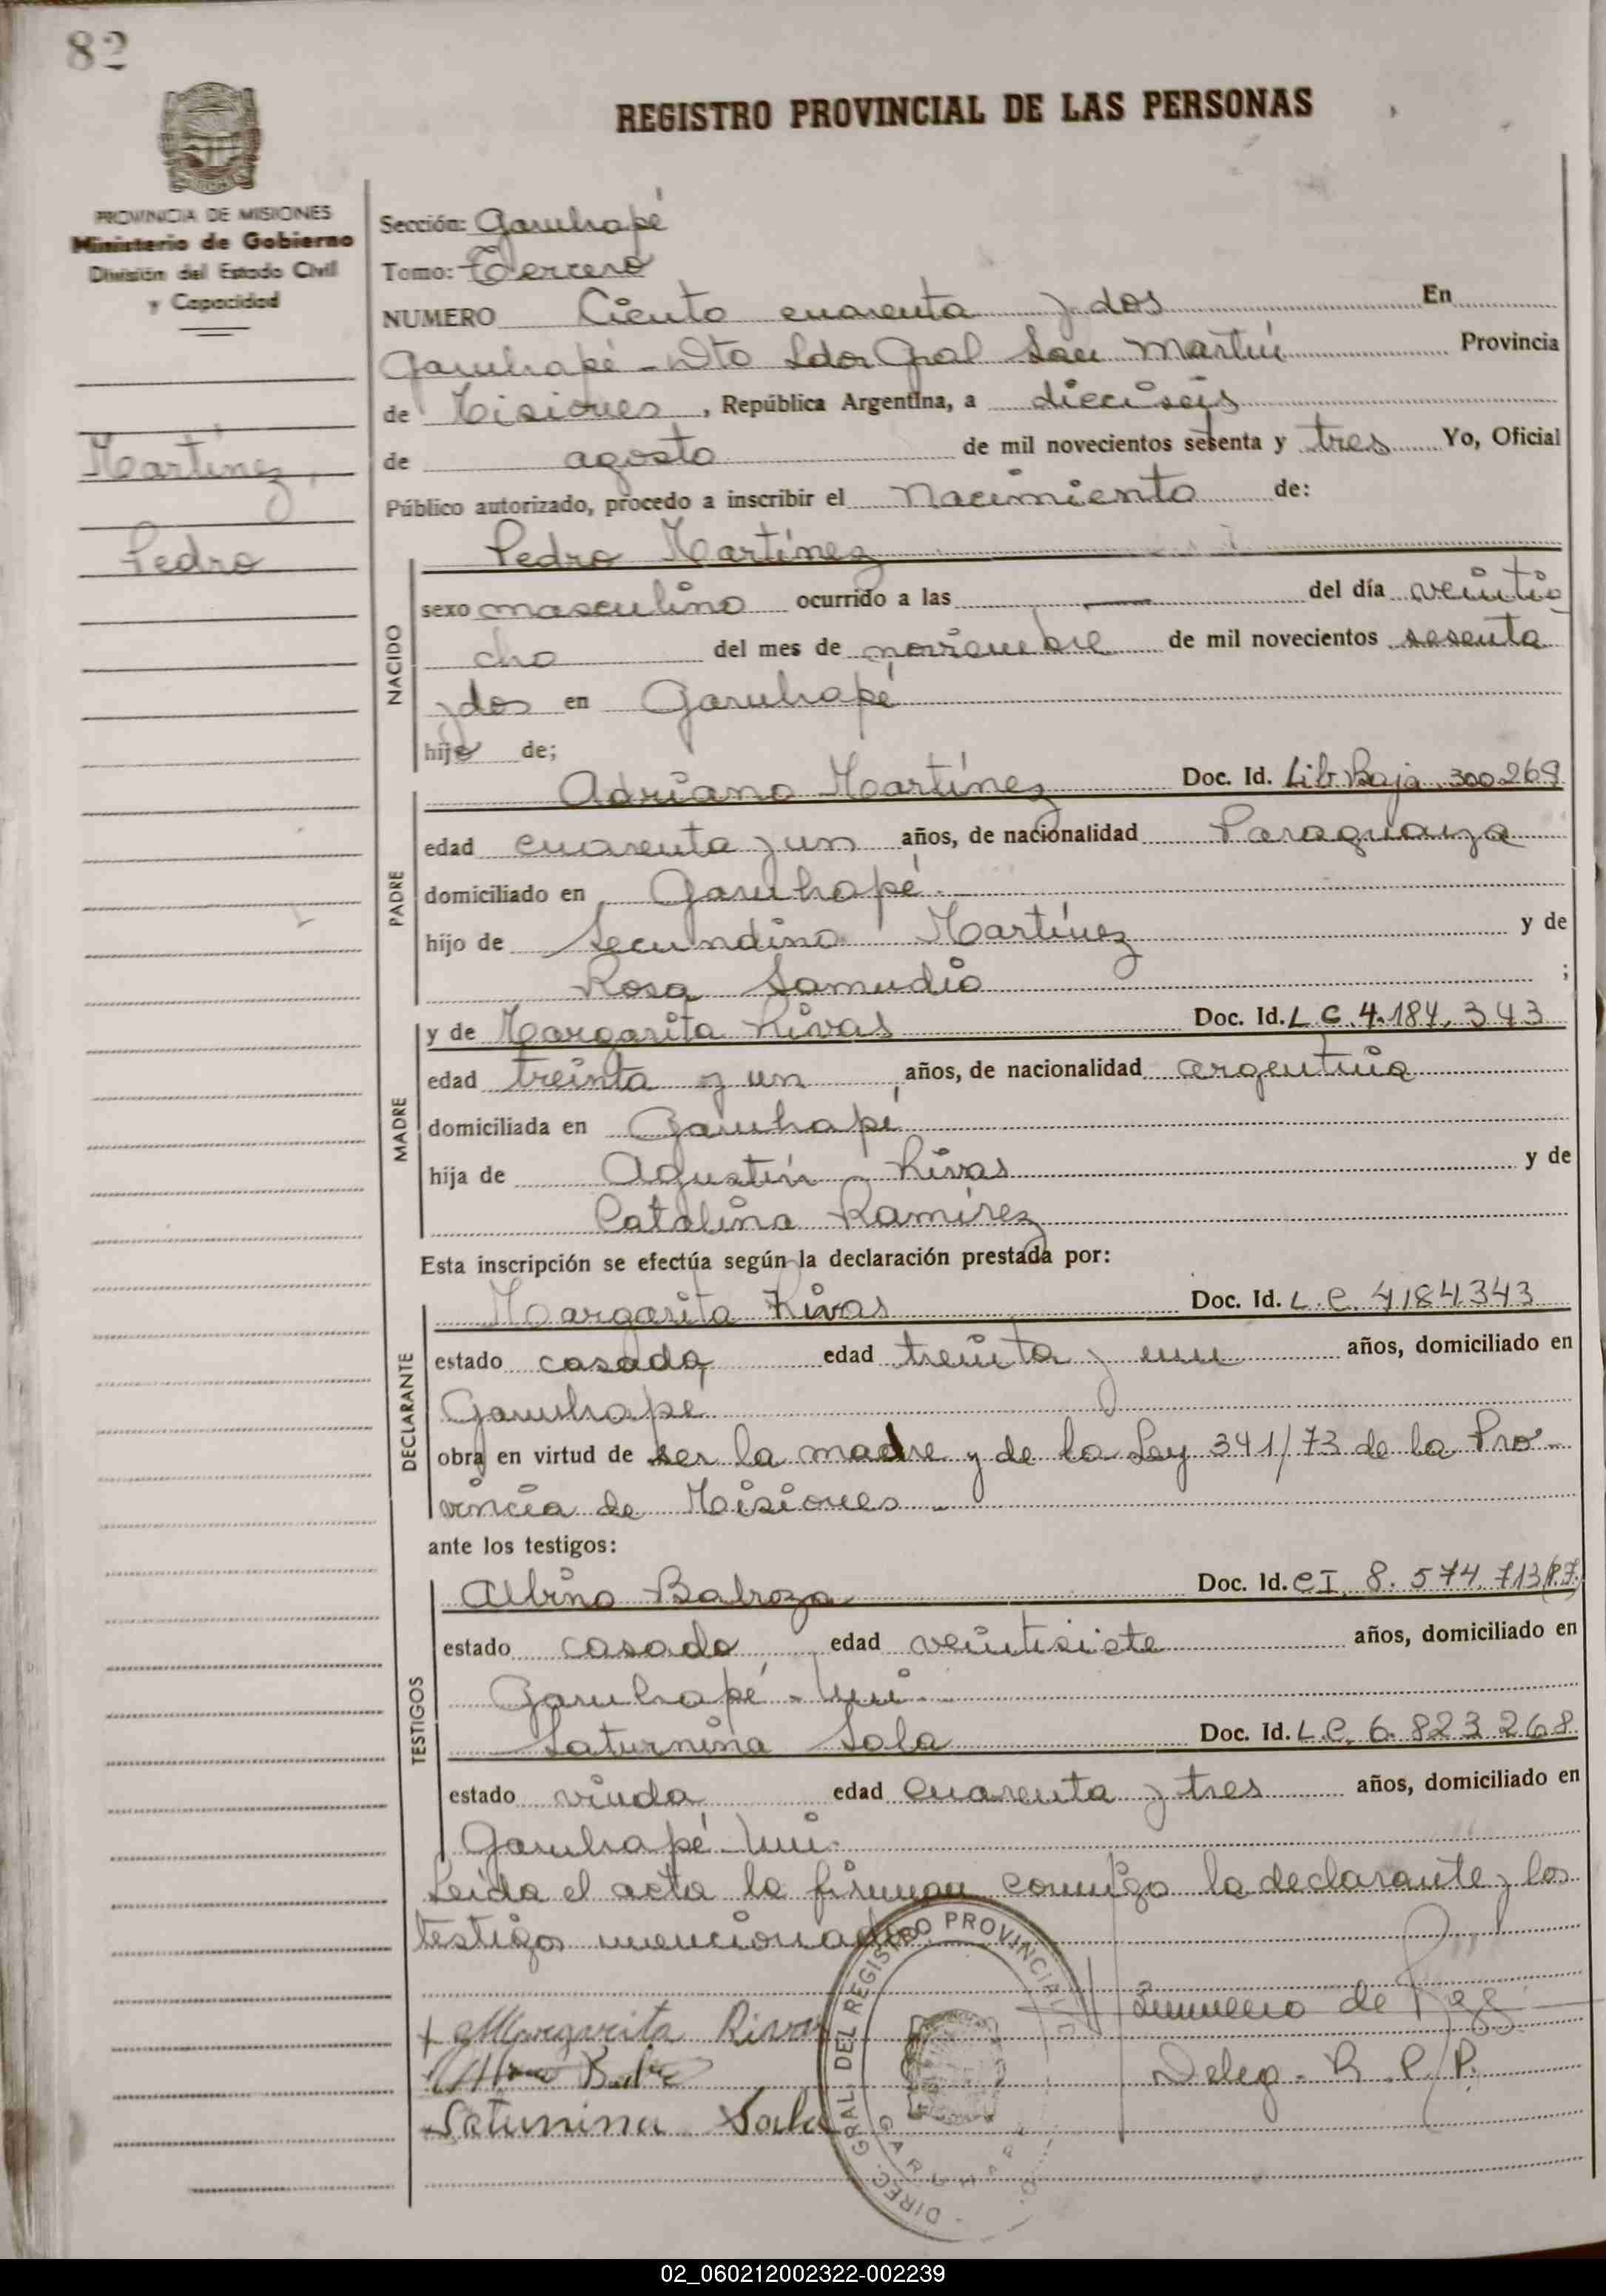 82
REGISTRO PROVINCIAL DE LAS PERSONAS
PROVINCIA DE MISIONES
Ministerio de Gobierno
División del Estado Civil
y Capacidad
Martínez,
Pedro
Sección: Garuhapé
Tomo: Tercero
NUMERO Ciento cuarenta y dos En
Garuhapé - Dto Ldor Gral San Martín Provincia
de Misiones, República Argentina, a dieciseis
de agosto de mil novecientos setenta y tres Yo, Oficial
Público autorizado, procedo a inscribir el Nacimiento de:
Pedro Martínez
NACIDO
sexo masculino ocurrido a las — del día veintio
cho del mes de noviembre de mil novecientos sesenta
y dos en Garuhapé
hijo de;
PADRE
Adriano Martínez Doc. Id. Lib. Baja 300269
edad cuarenta y un años, de nacionalidad Paraguaya
domiciliado en Garuhapé.
hijo de Secundino Martínez y de
Rosa Samudio ;
MADRE
y de Margarita Rivas Doc. Id. L C. 4.184.343
edad treinta y un años, de nacionalidad argentina
domiciliada en Garuhapé
hija de Agustín Rivas y de
Catalina Ramírez
Esta inscripción se efectúa según la declaración prestada por:
DECLARANTE
Margarita Rivas Doc. Id. L.C. 4184343
estado casada edad treinta y un años, domiciliado en
Garuhape
obra en virtud de ser la madre y de la Ley 341/73 de la Pro-
vincia de Misiones -
ante los testigos:
TESTIGOS
Albino Doc. Id. CI. 8.574.713
estado casado edad veintisiete años, domiciliado en
Garuhapé - Mi
Saturnina Sola Doc. Id. L.C. 6.823.268
estado viuda edad cuarenta y tres años, domiciliado en
Garuhapé - Mi.
Leída el acta la firman conmigo la declarante y los
testigos mencionados.
Margarita Rivas
Saturnina Sola
de
Deleg. R.P.P.
DIREC. GRAL. DEL REGISTRO PROVINCIAL
GARUHAPE
02_060212002322-002239